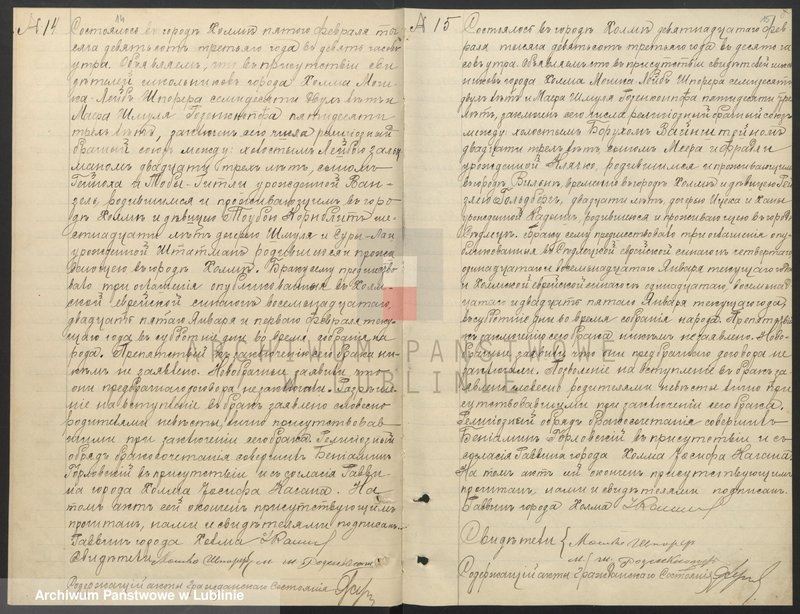 № 14
14
Состоялось въ городѣ Холмѣ пятого февраля ты-
сяча девятьсотъ третьяго года въ девять часовъ
утра. Объявляемъ, что въ присутствіи сви-
дѣтелей школьниковъ города Холма Мош-
ка-Лейбъ Шперера семидесяти двухъ лѣтъ и
Маера Шмуля пятидесяти
трехъ лѣтъ, заключенъ сего числа религіозный
брачный союзъ между: холостымъ Лейбою
двадцати трехъ лѣтъ, сыномъ
и Товбы-Гитли урожденной Ван-
дель, родившимся и проживающимъ въ горо-
дѣ Холмѣ и дѣвицею Товбою Корнблитъ ше-
стнадцати лѣтъ дочерью Шмуля и Суры-Лаи
урожденной Штатманъ родившеюся и прожи-
вающею въ городѣ Холмѣ. Браку сему предшество-
вало три оглашенія опубликованныя въ Холм-
ской еврейской синагогѣ восемнадцатаго,
двадцать пятаго Января и перваго февраля теку-
щаго года въ субботніе дни во время собранія на-
рода. Препятствій къ заключенію сего брака ни-
кѣмъ не заявлено. Новобрачные заявили что
они предбрачнаго договора не заключали. Разрѣше-
ніе на вступленіе въ бракъ заявлено словесно
родителями невѣсты, лично присутствовав-
шими при заключеніи сего брака. Религіозный
обрядъ бракосочетанія совершилъ Беніаминъ
Горловскій въ присутствіи и съ согласія Равви-
на города Холма Іосифа Кагана. На
томъ актъ сей оконченъ присутствующимъ
прочтенъ, нами и свидѣтелями подписанъ.
Раввинъ города Холма
Свидѣтели
Содержащій акты Гражданскаго Состоянія
№ 15
15
Состоялось въ городѣ Холмѣ девятнадцатаго фев-
раля тысяча девятьсотъ третьяго года въ десять ча-
совъ утра. Объявляемъ что въ присутствіи свидѣтелей школь-
никовъ города Холма Мошка Лейбъ Шперера семидесяти
двухъ лѣтъ и Маера Шмуля пятидесяти трехъ
лѣтъ, заключенъ сего числа религіозный брачный союзъ
между холостымъ Борухомъ Вайнштейномъ
двадцати трехъ лѣтъ, сыномъ Меера и Фрайли
урожденной родившимся и проживающимъ
въ городѣ временно въ городѣ Холмѣ и дѣвицею
Гольдбергъ, двадцати лѣтъ, дочерью Ицека и Ханы
урожденной родившеюся и проживающею въ городѣ
Сѣдлецѣ. Браку сему предшествовало три оглашенія опу-
бликованныя въ Сѣдлецкой еврейской синагогѣ четвертаго
одиннадцатаго и восемнадцатаго Января текущаго года
и Холмской еврейской синагогѣ одиннадцатаго, восемнад-
цатаго и двадцать пятаго Января текущаго года,
въ субботніе дни во время собранія народа. Препятствій
къ заключенію сего брака никѣмъ незаявлено. Ново-
брачные заявили что они предбрачнаго договора не
заключали. Позволеніе на вступленіе въ бракъ за-
явлено словесно родителями невѣсты лично при-
сутствовавшими при заключеніи сего брака.
Религіозный обрядъ бракосочетанія совершилъ
Беніаминъ Горловскій въ присутствіи и съ
согласія Раввина города Холма Іосифа Кагана.
На томъ актъ сей оконченъ присутствующимъ
прочтенъ нами и свидѣтелями подписанъ.
Раввинъ города Холма
Свидѣтели
Содержащій акты Гражданскаго Состоянія
ARCHIWUM PAŃSTWOWE
W LUBLINIE
Archiwum Państwowe w Lublinie